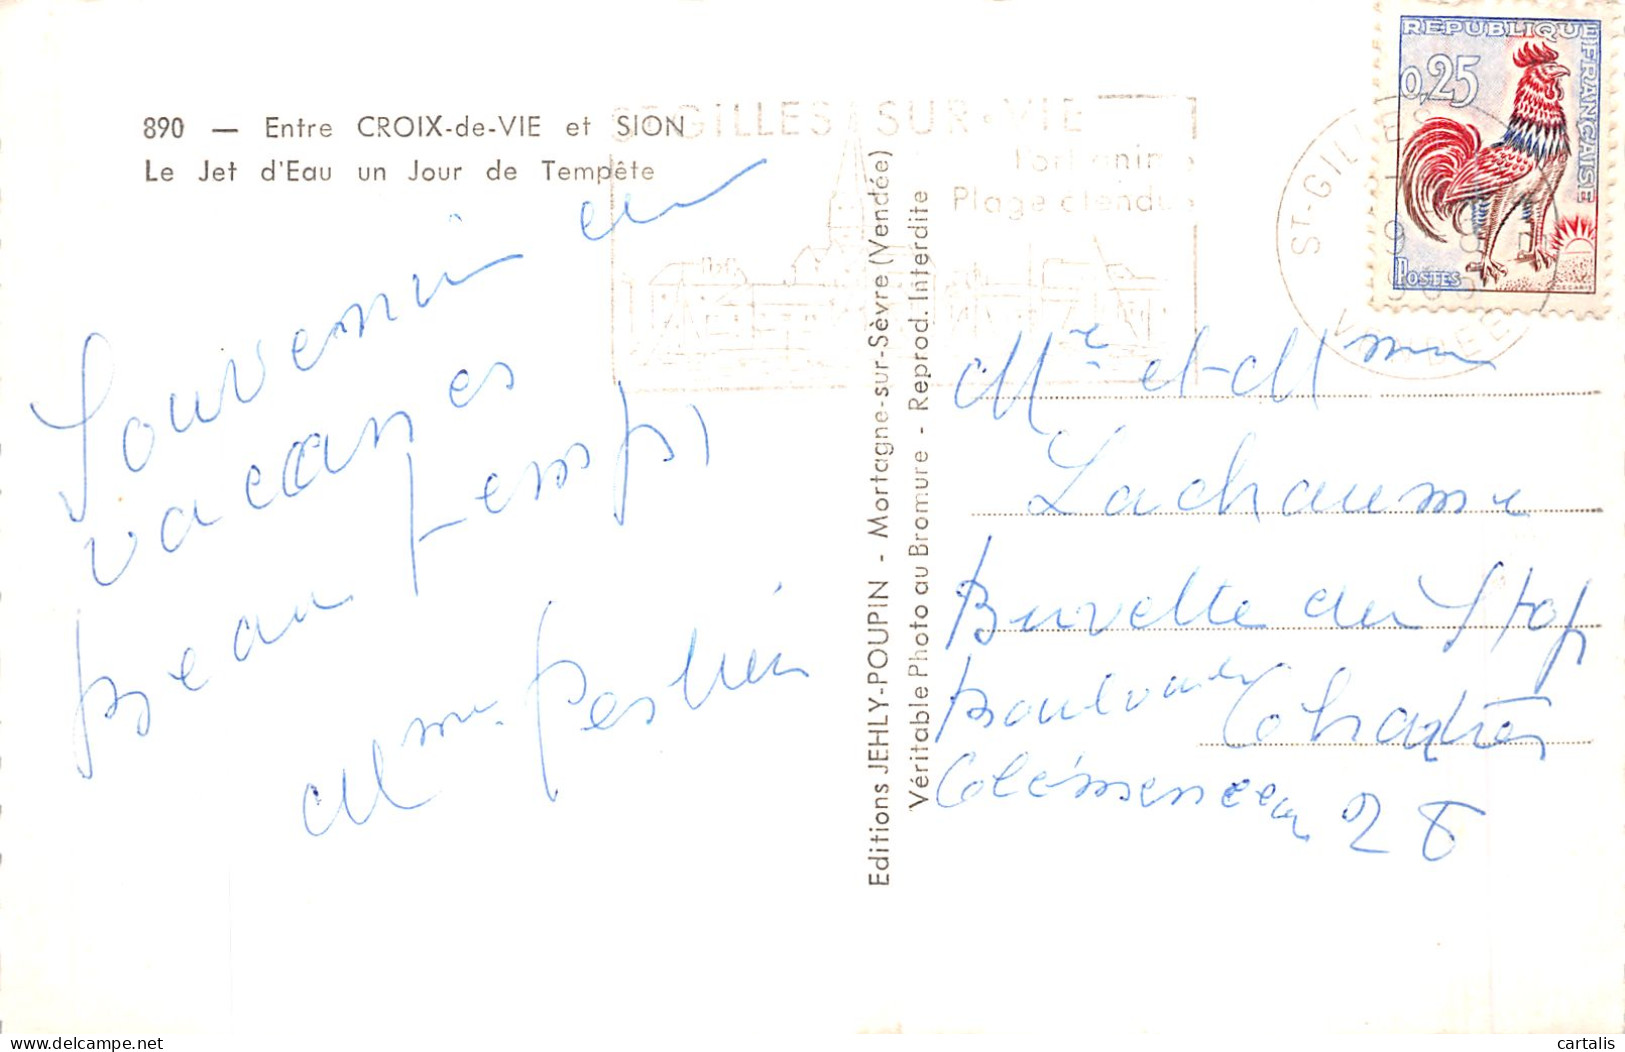 890 — Entre CROIX-de-VIE et SION
Le Jet d'Eau un Jour de Tempête
Souvenir en
vacances
beau temps
Mme
Editions JEHLY-POUPIN - Mortagne-sur-Sèvre (Vendée)
Véritable Photo au Bromure - Reprod. Interdite
ST GILLES SUR-VIE
Plage étendue
REPUBLIQUE FRANÇAISE
0,25
POSTES
DECARIS
ST-GILLES
VENDEE
Mr et Mme
Lachaume
Buvette du Stop
Boulevard
Chartres
Clémenceau 28
delcampe.net
cartalis